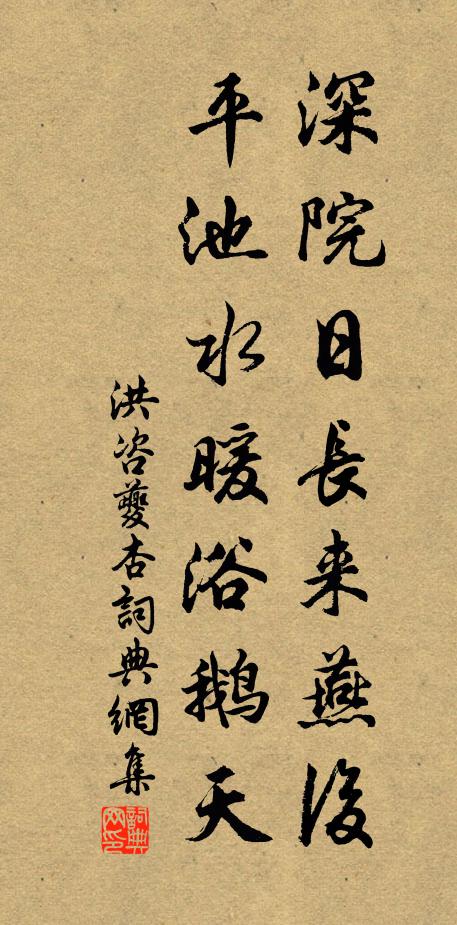 深院日長来燕後
平池水暖浴鵝天
洪咨夔杏詞典網集
詞典
网印